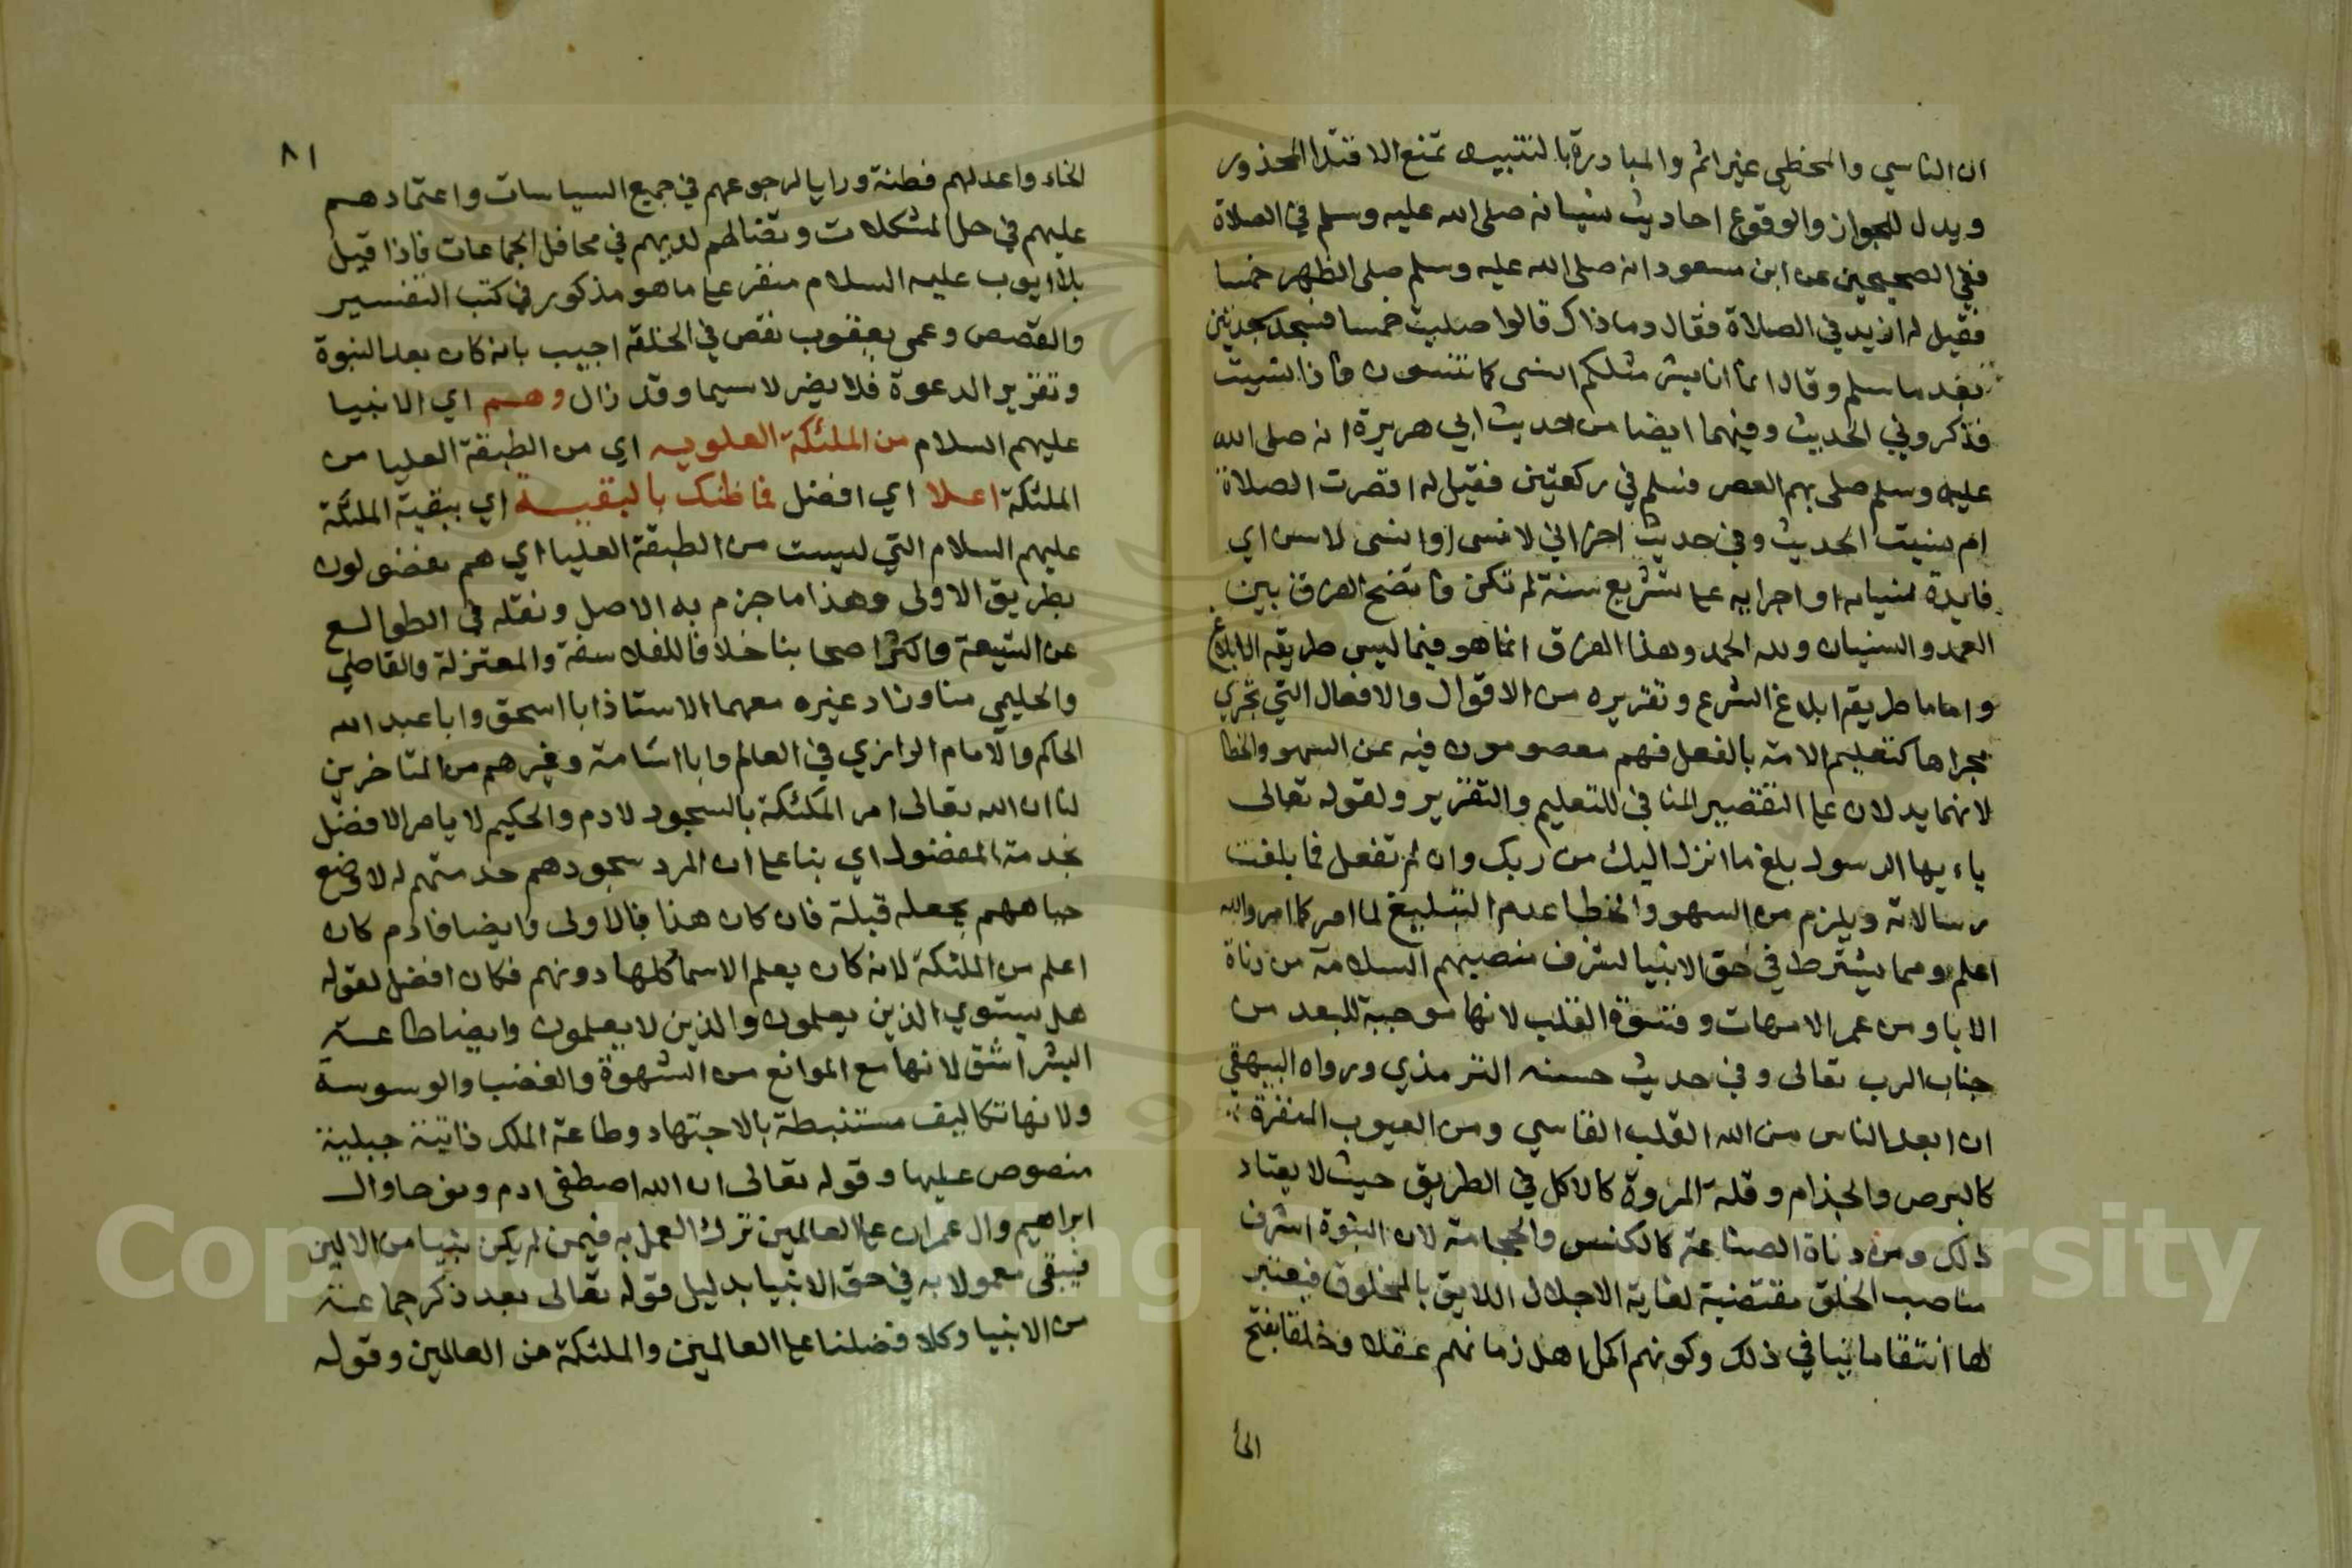 ان الناسي والمخطي غير اثم والمبادرة بالتنبيه تمنع الاقتدا المحذور
ويدل للجواز والوقوع احاديث نسيانه صلى الله عليه وسلم في الصلاة
ففي الصحيحين عن ابن مسعود انه صلى الله عليه وسلم صلى الظهر خمسا
فقيل له ازيد في الصلاة فقال وما ذاك قالوا صليت خمسا فسجد سجدتين
بعد ما سلم وقال انما انا بشر مثلكم انسى كما تنسون فاذا نسيت
فذكروني الحديث وفيهما ايضا من حديث ابي هريرة انه صلى الله
عليه وسلم صلى بهم العصر فسلم في ركعتين فقيل له اقصرت الصلاة
ام نسيت الحديث وفي حديث اخر اني لانسى اوانسى لاسن اي
فايدة نسيانه اواجرايه على تشريع سنة لم تكن فاتضح الفرق بين
العمد والنسيان ولله الحمد وهذا الفرق انما هو فيما ليس طريقه الابلاغ
واماما طريقه ابلاغ الشرع وتقريره من الاقوال والافعال التي تجري
مجراها كتعليم الامة بالفعل فهم معصومون فيه عن السهو والخطا
لانهما يدلان على التقصير المنافي للتعليم والتقرير ولقوله تعالى
ياءيها الرسول بلغ ما انزل اليك من ربك وان لم تفعل فما بلغت
رسالاته ويلزم من السهو والخطا عدم التبليغ لما امر كما امر والله
اعلم ومما يشترط في حق الانبيا لشرف منصبهم السلامة من دناة
الابا ومن عهر الامهات وقسوة القلب لانها موجبة للبعد من
جناب الرب تعالى وفي حديث حسنه الترمذي ورواه البيهقي
ان ابعد الناس من الله القلب القاسي ومن العيوب المنفرة
كالبرص والجذام وقلة المروة كالاكل في الطريق حيث لا يعتاد
ذلك ومن دناة الصناعة كالكنس والحجامة لان النبوة اشرف
مناصب الخلق مقتضية لغاية الاجلال اللايق بالمخلوق فيعتبر
لها انتقا ما ينافي ذلك وكونهم اكمل اهل زمانهم عقلا وخلقا بفتح
الخا
٨١
الخاء واعدلهم فطنة ورايا لرجوعهم في جميع السياسات واعتمادهم
عليهم في حل المشكلات وتضالهم لديهم في محافل الجماعات فاذا قيل
بلا ايوب عليه السلام منفر على ما هو مذكور في كتب التفسير
والقصص وعمى يعقوب نقص في الخلقة اجيب بانه كان بعد النبوة
وتقرير الدعوة فلا يضر لاسيما وقد زال وهم اي الانبيا
عليهم السلام من الملئكة العلويه اي من الطبقة العليا من
الملئكة اعلا اي افضل فما ظنك بالبقية اي ببقية الملئكة
عليهم السلام التي ليست من الطبقة العليا اي هم مفضولون
بطريق الاولى وهذا ما جزم به الاصل ونقله في الطوالع
عن الشيعة واكثر اصحابنا خلافا للفلاسفة والمعتزلة والقاضي
والحليمي منا وزاد غيره معهما الاستاذ ابا اسحق وابا عبد الله
الحاكم والامام الرازي في العالم وابا اشامة وغيرهم من المتاخرين
لنا ان الله تعالى امر الملئكة بالسجود لادم والحكيم لا يامر الافضل
بخدمة المفضول اي بنا على ان المرد سجودهم خدمتهم له لا وضع
جباههم بجعله قبلة فان كان هذا فالاولى وايضا فادم كان
اعلم من الملئكة لانه كان يعلم الاسما كلها دونهم فكان افضل لقوله
هل يستوي الذين يعلمون والذين لا يعلمون وايضا طاعة
البشر اشق لانها مع الموانع من الشهوة والغضب والوسوسة
ولانها تكاليف مستنبطة بالاجتهاد وطاعة الملك ذاتية جبلية
منصوص عليها وقوله تعالى ان الله اصطفى ادم ونوحا وال
ابراهيم وال عمران على العالمين ترك العمل به فيمن لم يكن نبيا من الالين
فيبقى معمولا به في حق الانبيا بدليل قوله تعالى بعد ذكر جماعة
من الانبيا وكلا فضلنا على العالمين والملئكة من العالمين وقوله
Copyright © King Saud University